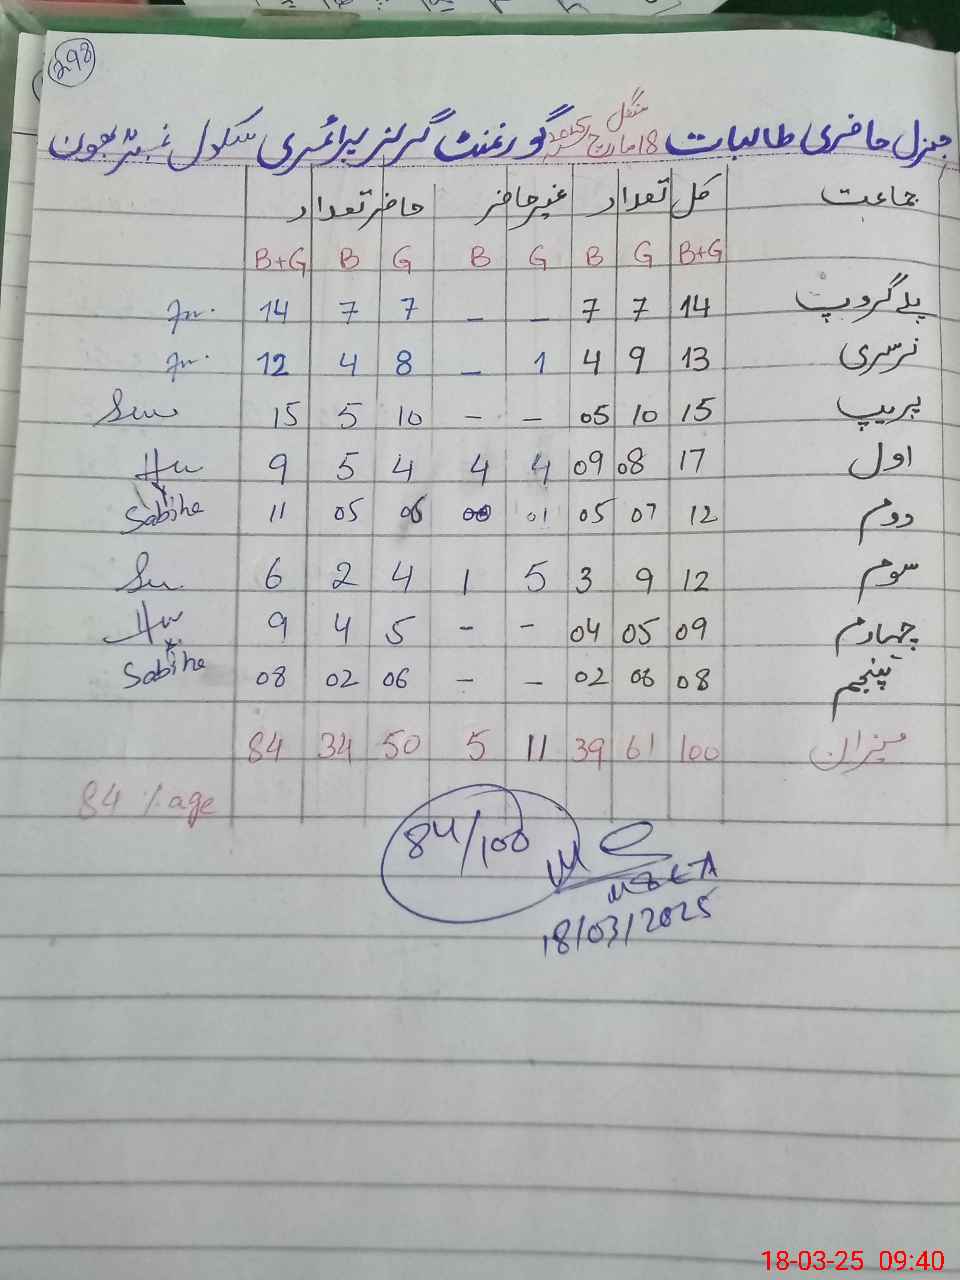 298
جنرل حاضری طالبات 18 مارچ 2025 منگل گورنمنٹ گرلز پرائمری سکول
جماعت کل تعداد غیر حاضر حاضر تعداد
B+G G B G B G B B+G
پلے گروپ 14 7 7 – – 7 7 14
نرسری 13 9 4 1 – 8 4 12
پریپ 15 10 05 – – 10 5 15
اول 17 08 09 4 4 4 5 9
دوم 12 07 05 01 00 06 05 11 Sabiha
سوم 12 9 3 5 1 4 2 6
چہارم 09 05 04 – – 5 4 9
پنجم 08 06 02 – – 06 02 08 Sabiha
میزان 100 61 39 11 5 50 34 84
84 %age
84/100
18/03/2025
18-03-25 09:40